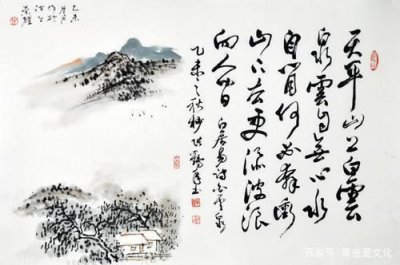 天平山上白雲
泉雲自無心水
自閒何必奔衝
山下去更添波浪
向人間 白居易詩白雲泉
乙未之秋
乙未
百家号/